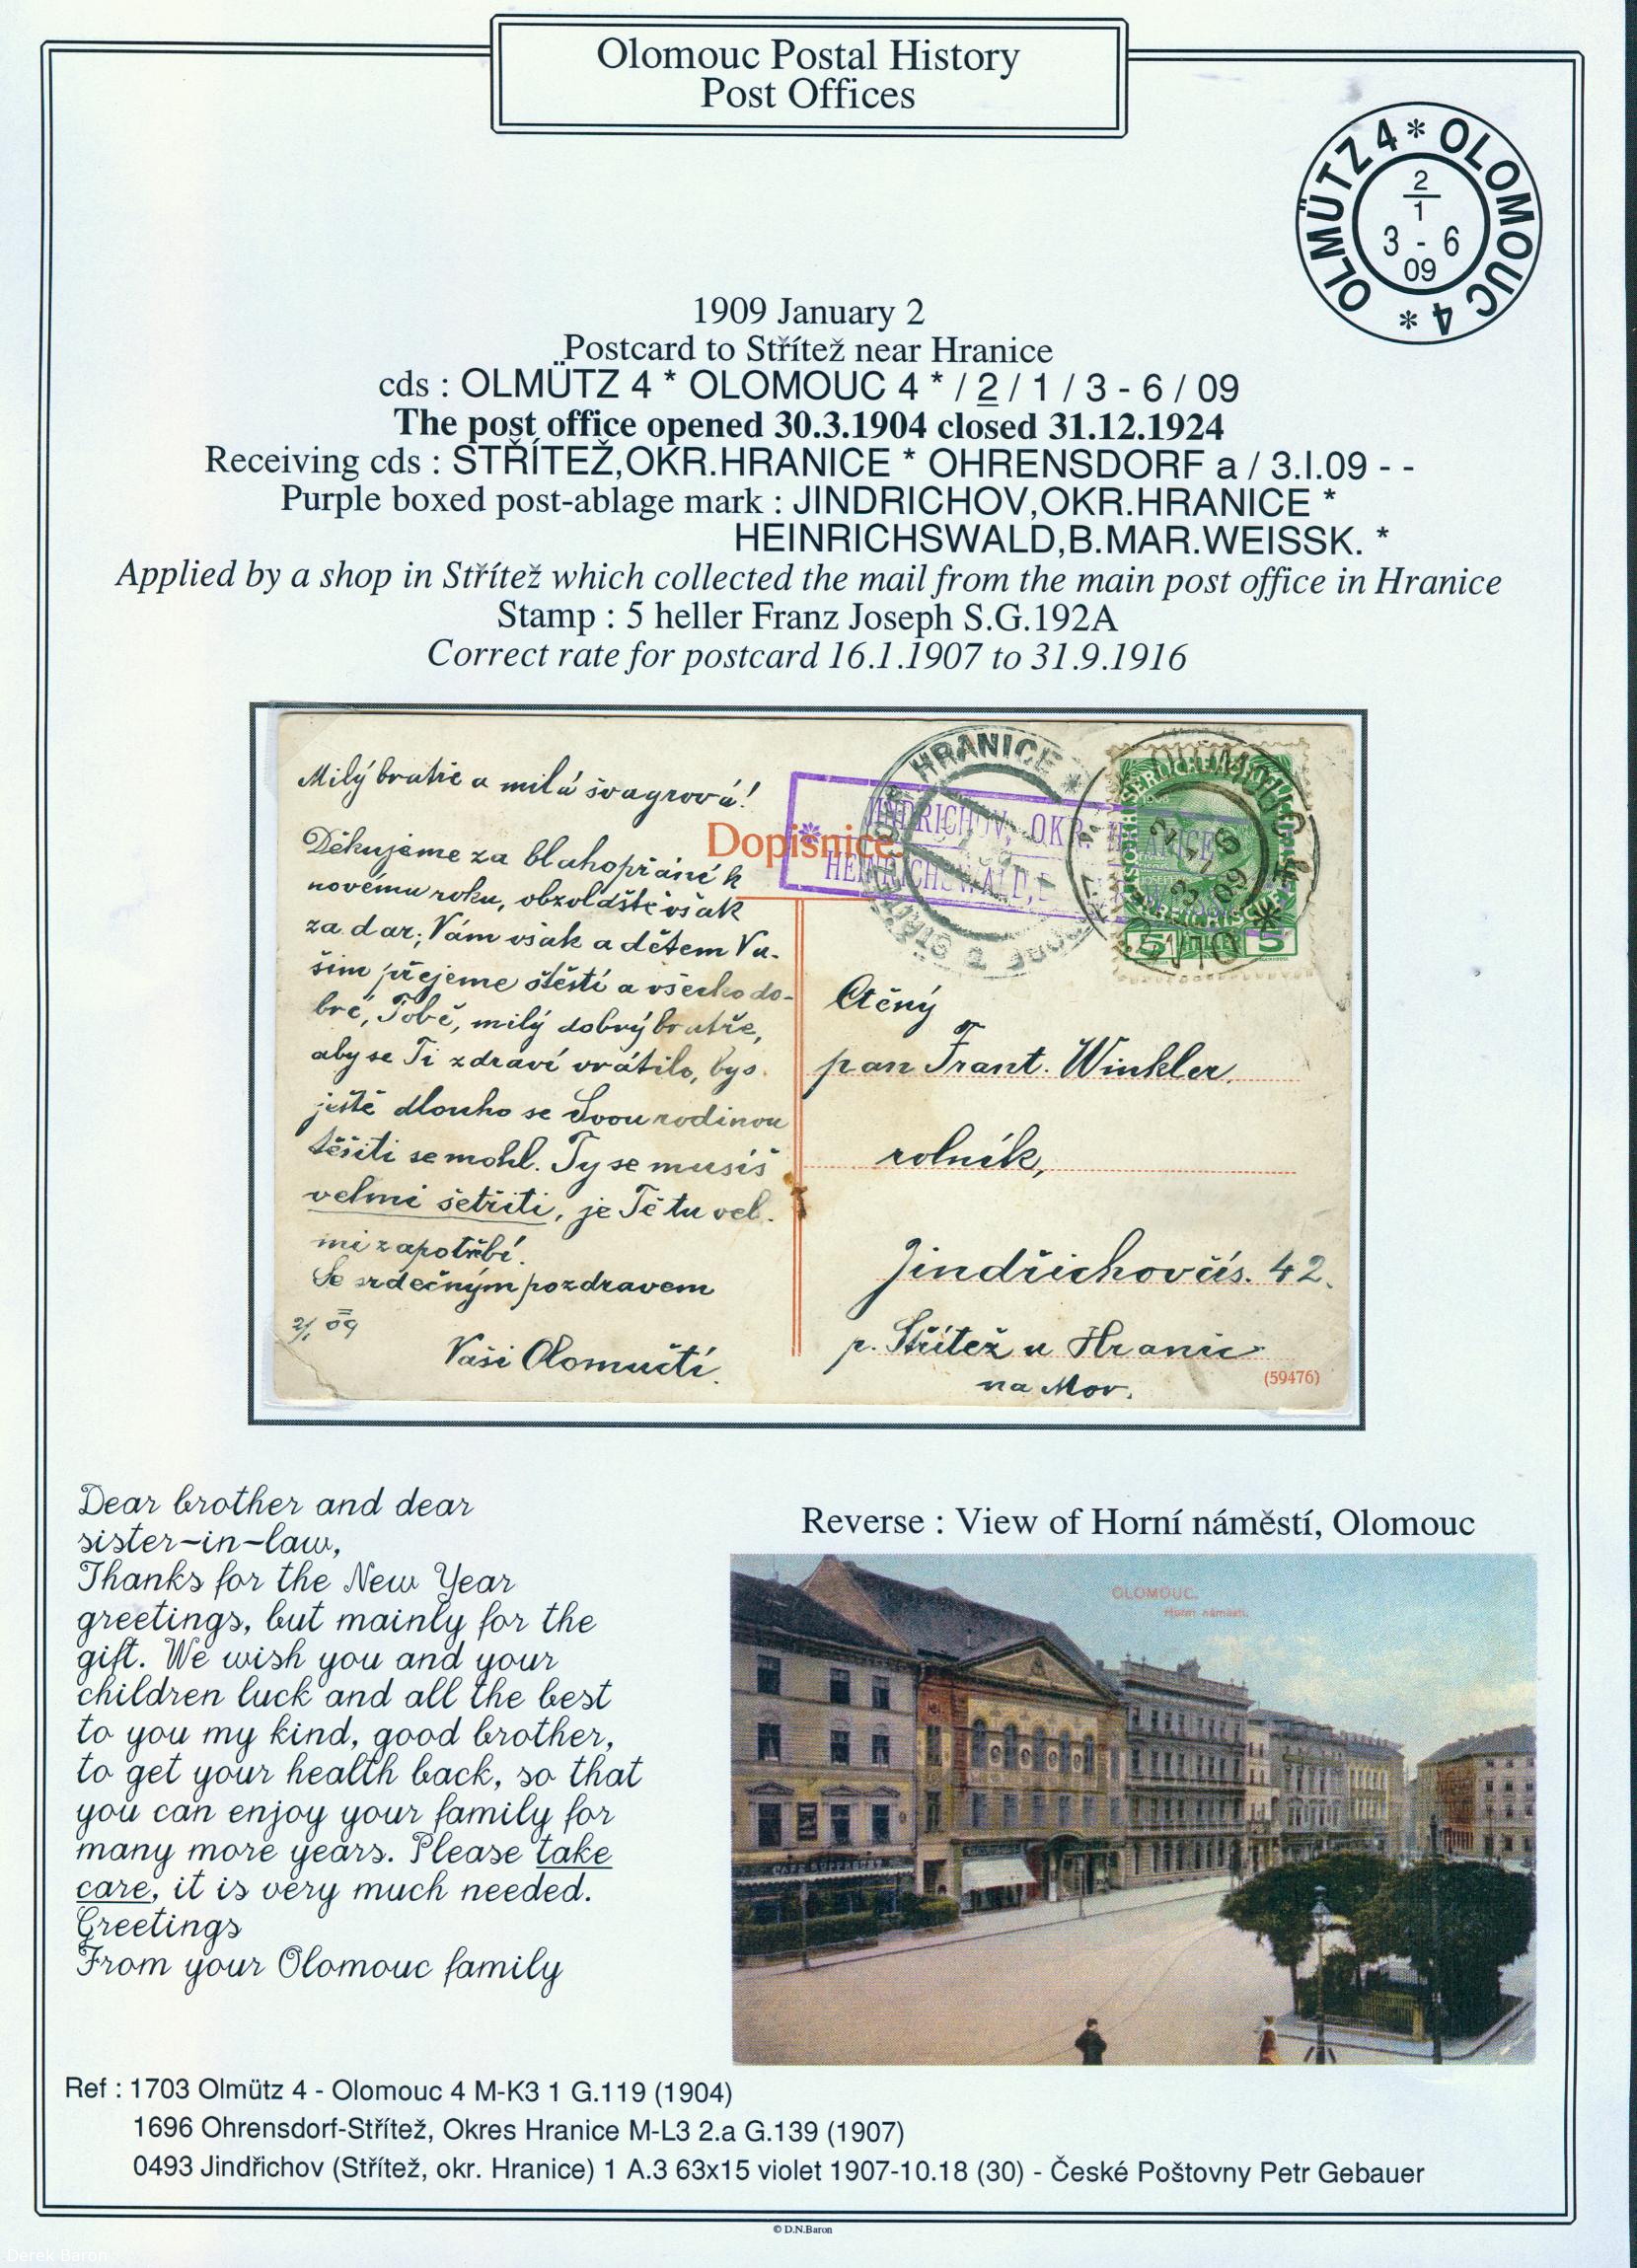 Olomouc Postal History
Post Offices
OLMÜTZ 4 * OLOMOUC 4 *
2
1
3 - 6
09
1909 January 2
Postcard to Střítež near Hranice
cds : OLMÜTZ 4 * OLOMOUC 4 * / 2 / 1 / 3 - 6 / 09
The post office opened 30.3.1904 closed 31.12.1924
Receiving cds : STŘÍTEŽ,OKR.HRANICE * OHRENSDORF a / 3.I.09 - -
Purple boxed post-ablage mark : JINDRICHOV,OKR.HRANICE *
HEINRICHSWALD,B.MAR.WEISSK. *
Applied by a shop in Střítež which collected the mail from the main post office in Hranice
Stamp : 5 heller Franz Joseph S.G.192A
Correct rate for postcard 16.1.1907 to 31.9.1916
Milý bratře a milá švagrová!
Děkujeme za blahopřání k
novému roku, obzvláště však
za dar; Vám však a dětem Va-
šim přejeme štěstí a všecko do-
bré, Tobě, milý dobrý bratře,
aby se Ti zdraví vrátilo, bys
ještě dlouho se Svou rodinou
těšiti se mohl. Ty se musíš
velmi šetřiti, je Tě tu vel-
mi zapotřebí.
Se srdečným pozdravem
2/I 09
Vaši Olomučtí.
Dopisnice.
HRANICE *
JINDRICHOV, OKR. HRANICE
HEINRICHSWALD,
5 5
Ctěný
pan Frant. Winkler,
rolník,
Jindřichov čís. 42.
p. Střítež u Hranic
na Mor.
(59476)
Dear brother and dear
sister-in-law,
Thanks for the New Year
greetings, but mainly for the
gift. We wish you and your
children luck and all the best
to you my kind, good brother,
to get your health back, so that
you can enjoy your family for
many more years. Please take
care, it is very much needed.
Greetings
From your Olomouc family
Reverse : View of Horní náměstí, Olomouc
OLOMOUC.
Horní náměstí.
Ref : 1703 Olmütz 4 - Olomouc 4 M-K3 1 G.119 (1904)
1696 Ohrensdorf-Střítež, Okres Hranice M-L3 2.a G.139 (1907)
0493 Jindřichov (Střítež, okr. Hranice) 1 A.3 63x15 violet 1907-10.18 (30) - České Poštovny Petr Gebauer
© D.N.Baron
Derek Baron